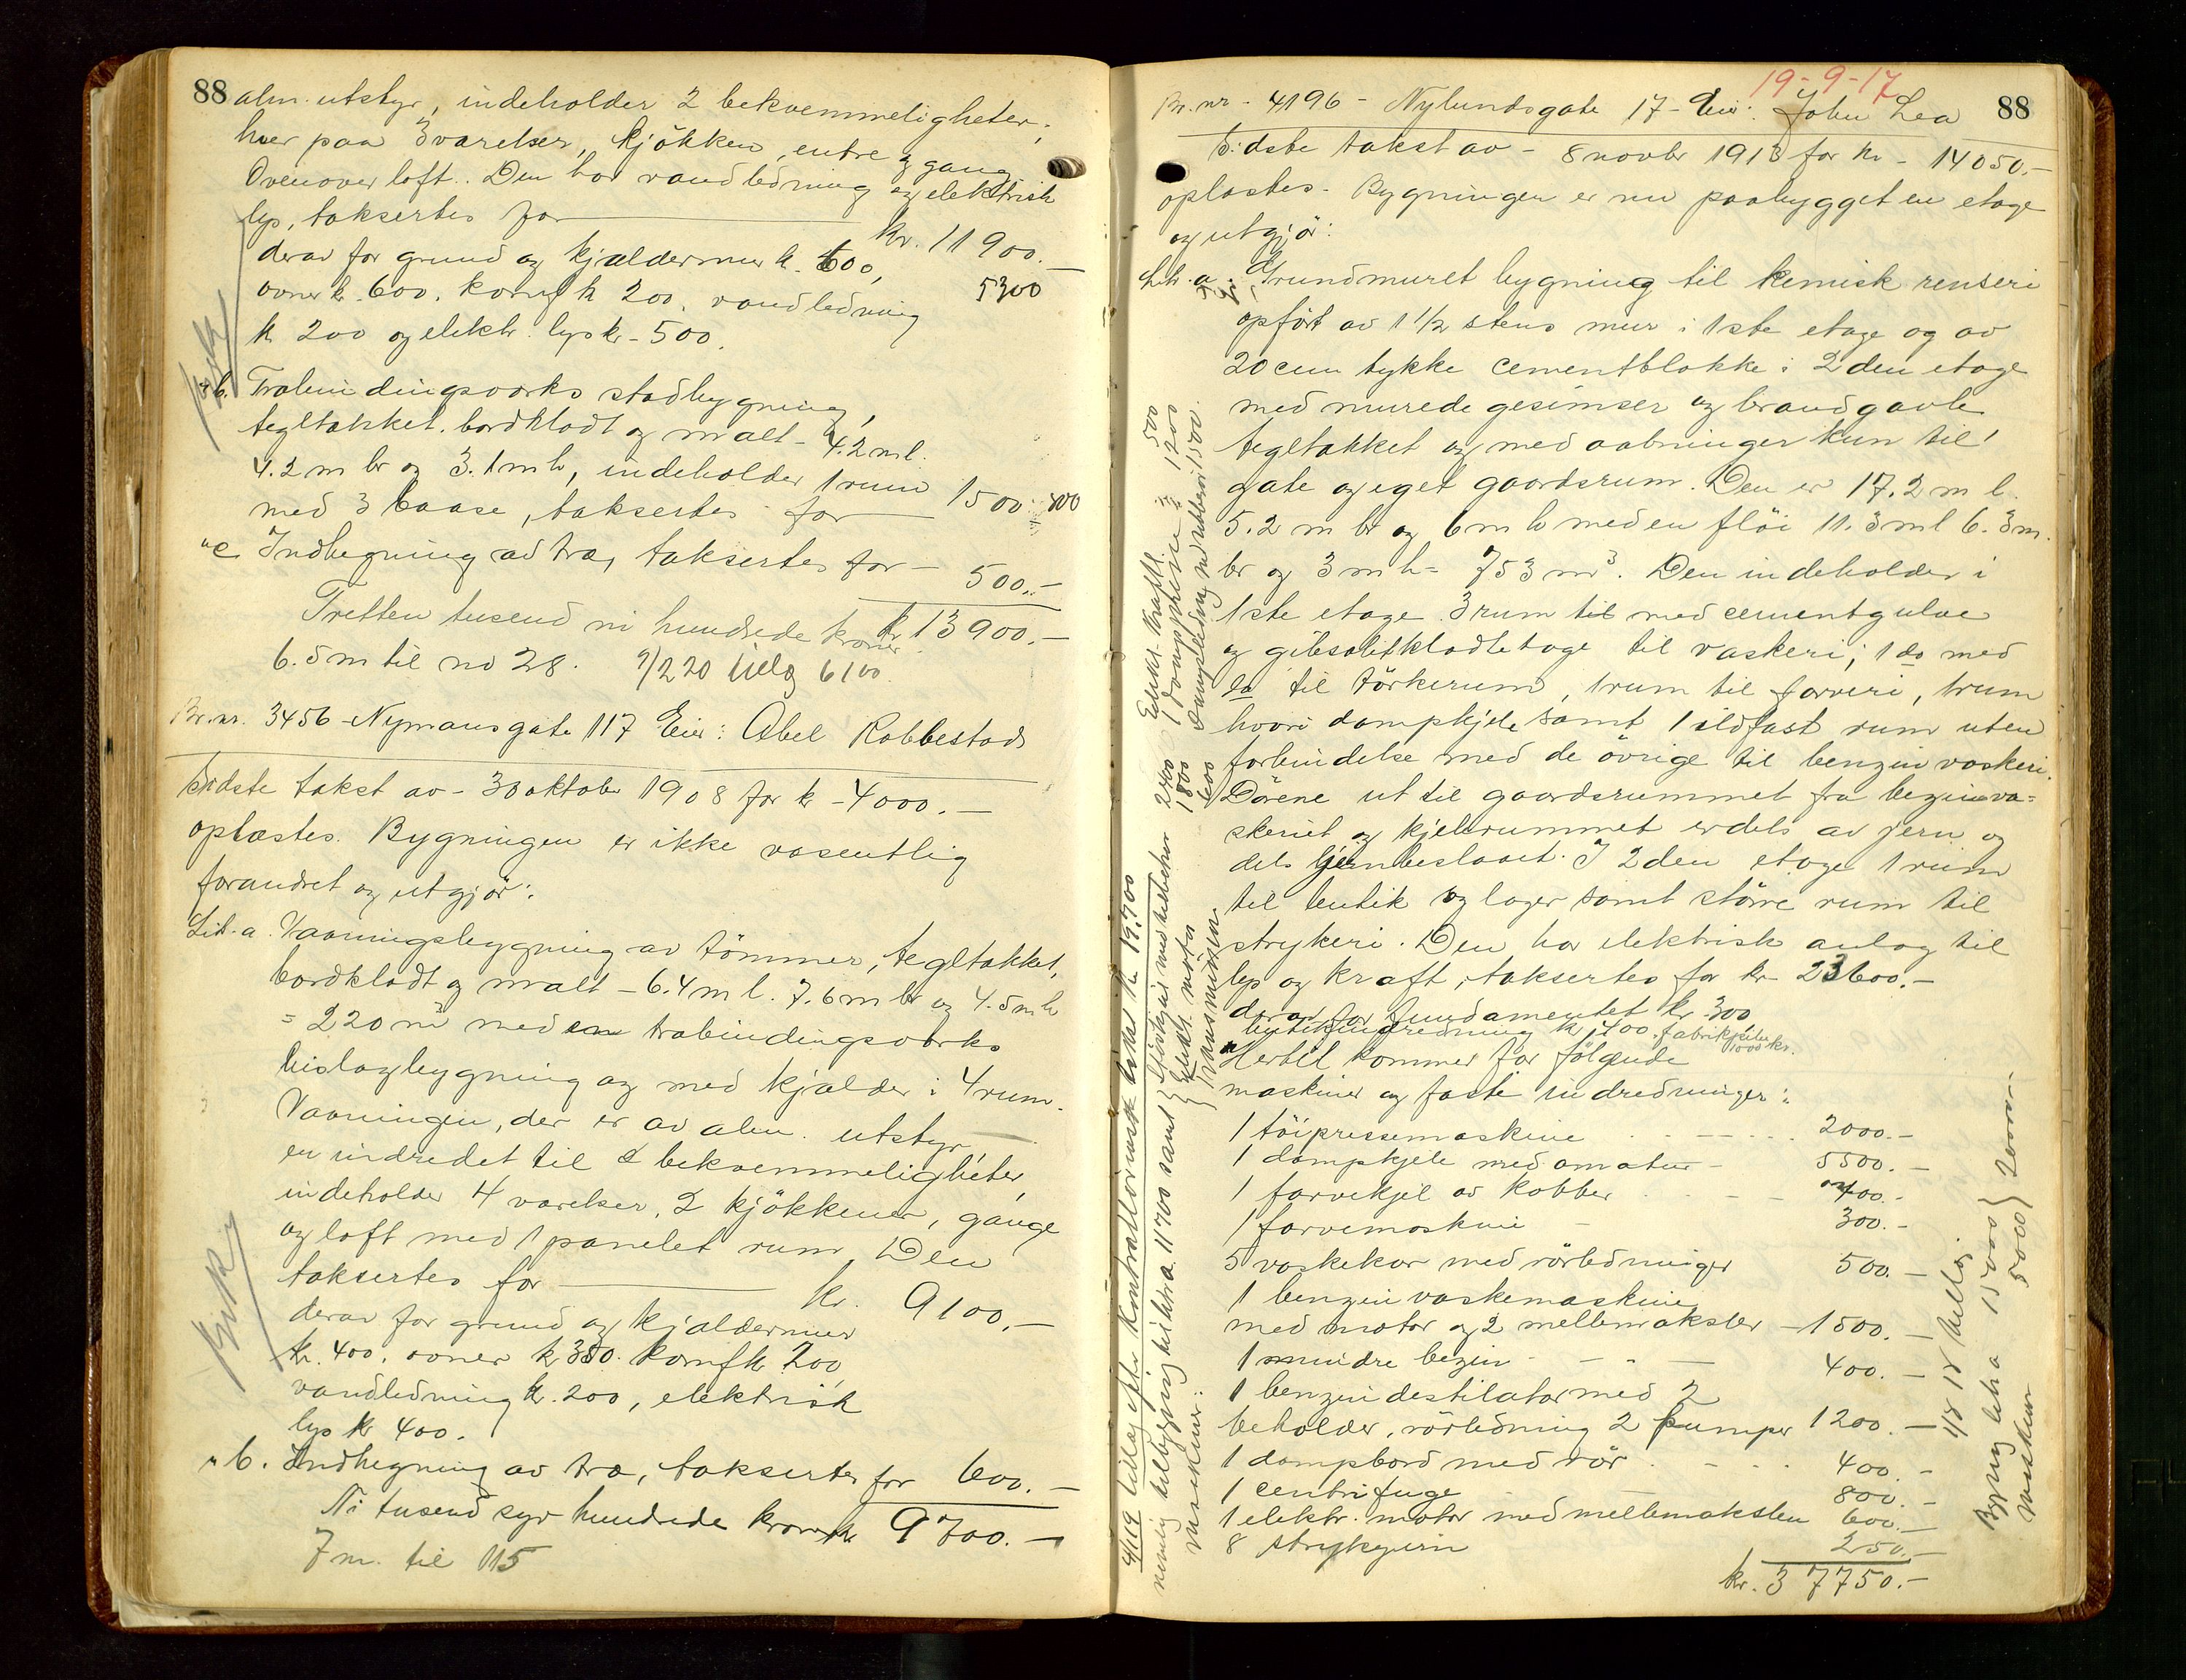 88
alm. utstyr, indeholder 2 bekvemmeligheter,
hver paa 3 værelser, kjökken, entre og gang.
Ovenover loft. Den har vandledning og elektrisk
lys, taksertes for kr. 11900.—
derav for grund og kjældermur k. 600, 5300
ovner kr. 600. komf k 200. vandledning
k 200 og elektr. lys kr - 500.
" b. Træbindingsverks stadbygning,
tegltækket, bordklædt og malt - 4.2 m l.
4.2 m br og 3.1 m h, indeholder 1 rum
med 3 baase, taksertes for 1500.- 800
" c. Indhegning av træ, taksertes for - 500.-
Tretten tusend ni hundrede kroner kr 13900.—
6.5 m til no 28. 9/2 20 tillæg 6100.
Br. nr. 3456 - Nymansgate 117 Eier: Abel Robbestad
Sidste takst av - 30 oktober 1908 for kr - 4000.—
oplæstes. Bygningen er ikke væsentlig
forandret og utgjör:
Lit. a. Vaaningsbygning av tömmer, tegltækket,
bordklædt og malt - 6.4 m l. 7.6 m br og 4.5 m h
= 220 m³ med en træbindingsverks
bislagbygning og med kjælder i 4 rum.
Vaaningen, der er av alm. utstyr,
er indredet til 2 bekvemmeligheter,
indeholder 4 værelser, 2 kjökkener, gange
og loft med 1 panelet rum. Den
taksertes for kr. 9100.—
derav for grund og kjældermur
kr. 400. ovner k 350. komf k 200,
vandledning k. 200, elektrisk
lys kr 400.
" b. Indhegning av træ, taksertes for 600.—
Ni tusend syv hundrede kroner kr 9700.—
7 m. til 115
19-9-17
88
Br. nr - 4196 - Nylundsgate 17 - Eier: John Lea
Sidste takst av - 8 novbr 1913 for kr - 14050.-
oplæstes. Bygningen er nu paabygget en etage
og utgjör:
Lit. a. Grundmuret bygning til kemisk renseri
opfört av 1 1/2 stens mur i 1ste etage og av
20 cm tykke cementblokke i 2den etage
med murede gesimser og brandgavle
tegltækket og med aabninger kun til
gate og eget gaardsrum. Den er 17.2 m l.
5.2 m br og 6 m h med en flöi 11.3 m l 6.3 m.
br og 3 m h = 753 m³. Den indeholder i
1ste etage 3 rum til med cementgulve
og gibsolitklædte tage til vaskeri; 1 do med
do til törkerum, 1 rum til farveri, 1 rum
hvori dampkjele samt 1 ildfast rum uten
forbindelse med de övrige til benzinvaskeri.
Dörene ut til gaardsrummet fra bezinva=
skeriet og kjelerummet er dels av jern og
dels jernbeslaaet. I 2den etage 1 rum
til butik og lager samt större rum til
strykeri. Den har elektrisk anlæg til
lys og kraft, taksertes for kr 23600.-
derav for fundamentet kr. 300
butikindredning k 400. fabrikpibe 1000 kr.
Hertil kommer for fölgende
maskiner og faste indredninger:
1 töipressemaskine 2000.-
1 dampkjele med amatur - 5500.-
1 farvekjel av kobber 700.-
1 farvemaskine - 300.-
5 vaskekar med rörledninger 500.-
1 benzinvaskemaskine
med motor og 2 mellemaksler - 1500.-
1 mindre bezin - 400.-
1 benzindestilator med 2
beholder, rörledning 2 pumper 1200.-
1 dampbord med rör 400.-
1 centrifuge 800.-
1 elektr. motor med mellemakslen 600.-
8 strykejern 250.-
kr. 37750.-
4/1 19 tillægstakst kr. 19,700
nemlig tilbygning til litra a. 11700 samt
maskiner:
2400 Elektr. kraft. 500
Elektr. motor 1800 1200
Transmisjon 600 1500.
Bygning litra a 15000
maskiner 5000 20000.-